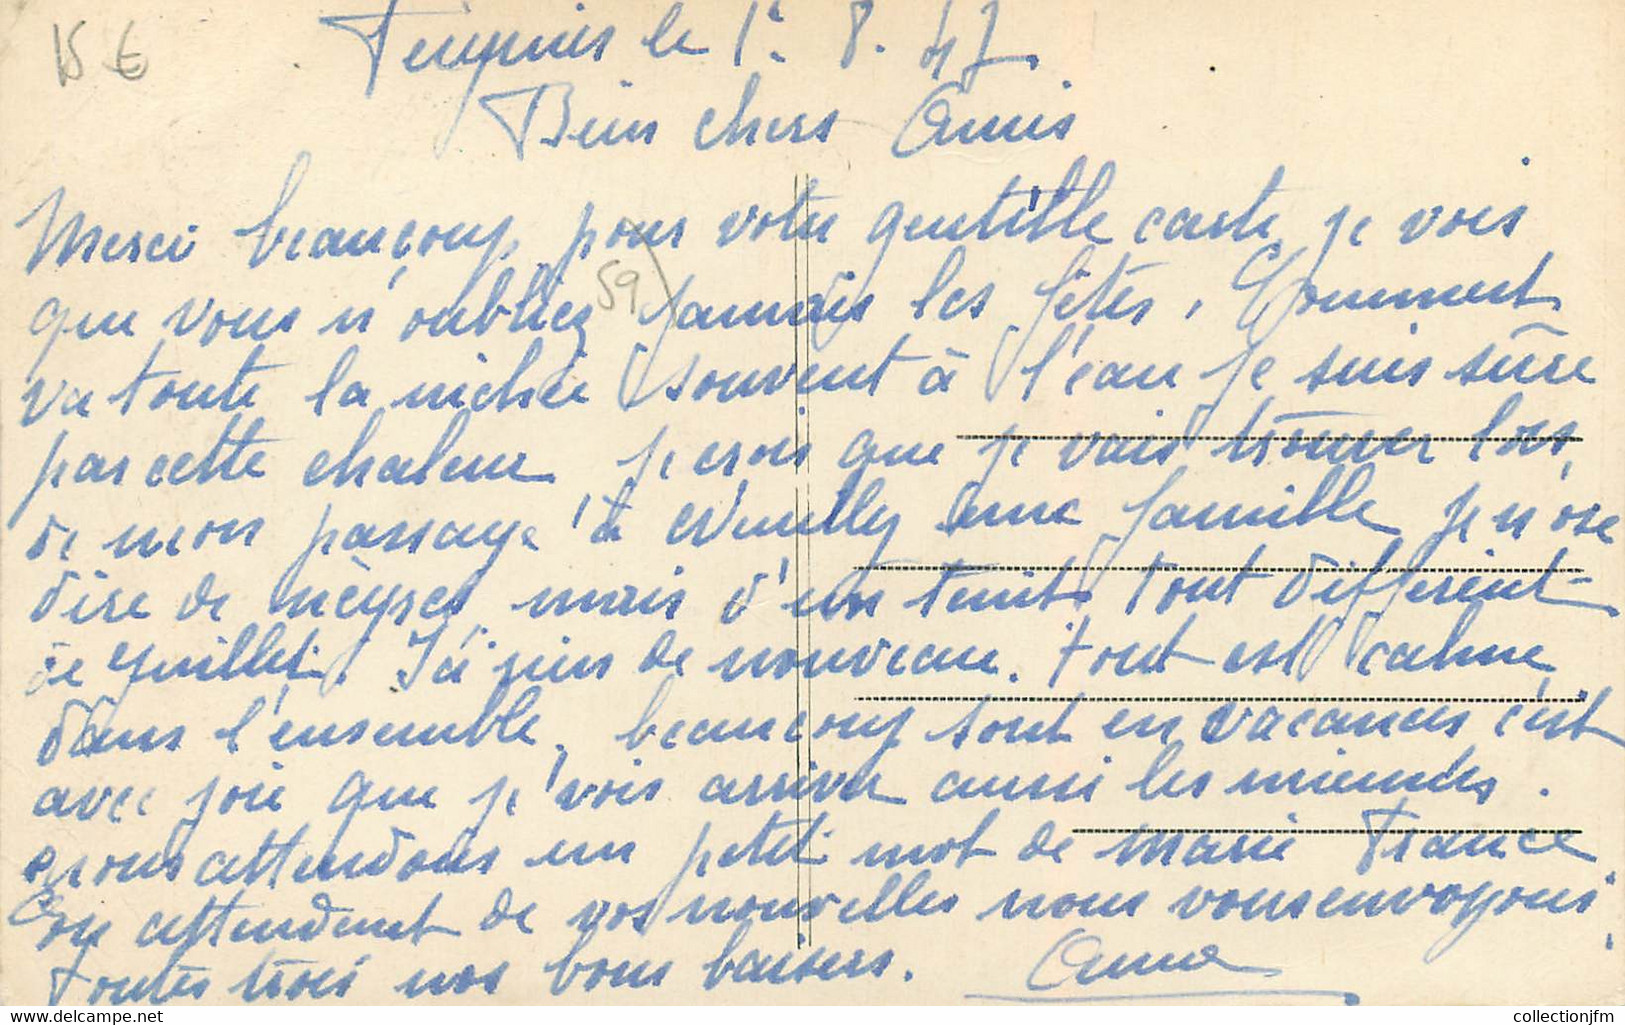 15 €
Feignies le 1. 8. 47
Bien chers Amis
Merci beaucoup pour votre gentille carte je vois
que vous n'oubliez jamais les fêtes, Comment
59
va toute la nichée souvent à l'eau je suis sûre
par cette chaleur je crois que je vais trouver lors
de mon passage à Neuilly une famille je n'ose
dire de nègres, mais d'un teint tout différent
de Juillet. Ici rien de nouveau. tout est calme
dans l'ensemble, beaucoup sont en vacances c'est
avec joie que je vois arriver aussi les miennes.
nous attendons un petit mot de Marie France
En attendant de vos nouvelles nous vous envoyons
toutes trois nos bons baisers. Anna
www.delcampe.net
collectionjfm